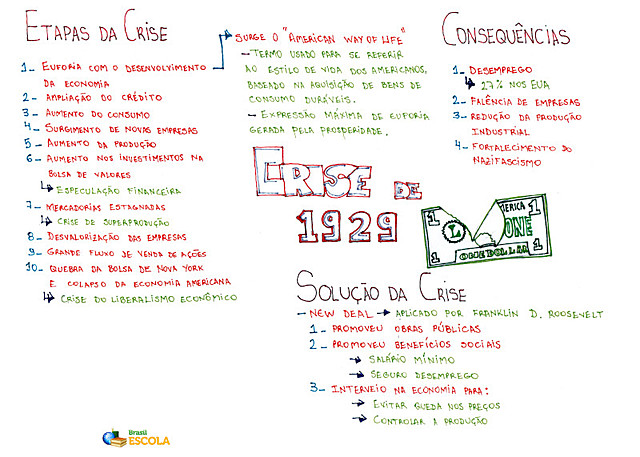 Etapas da Crise
1_ Euforia com o desenvolvimento
da economia
2_ Ampliação do crédito
3_ Aumento do consumo
4_ Surgimento de novas empresas
5_ Aumento da produção
6_ Aumento nos investimentos na
bolsa de valores
↳ Especulação financeira
7_ Mercadorias estagnadas
↳ Crise de superprodução
8_ Desvalorização das empresas
9_ Grande fluxo de venda de ações
10_ Quebra da Bolsa de Nova York
e colapso da economia americana
↳ Crise do liberalismo econômico
Surge o "American Way of Life"
– Termo usado para se referir
ao estilo de vida dos americanos,
baseado na aquisição de bens de
consumo duráveis.
– Expressão máxima de euforia
gerada pela prosperidade.
Consequências
1_ Desemprego
↳ 27% nos EUA
2_ Falência de empresas
3_ Redução da produção
industrial
4_ Fortalecimento do
nazifascismo
Crise de
1929
1
ERICA 1
L
ONE
1 ONE DOLLAR 1
Solução da Crise
– New Deal → Aplicado por Franklin D. Roosevelt
1_ Promoveu obras públicas
2_ Promoveu benefícios sociais
→ Salário mínimo
→ Seguro desemprego
3_ Interveio na economia para:
→ Evitar queda nos preços
→ Controlar a produção
Brasil
ESCOLA